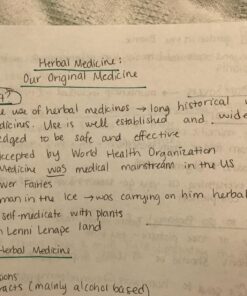 Herbal Medicine:
Our Original Medicine
use of herbal medicines → long historical
dicines. Use is well established and wide
edged to be safe and effective
ccepted by World Health Organization
Medicine was medical mainstream in the US
wer Fairies
man in the Ice → was carrying on him herbal
self-medicate with plants
n Lenni Lenape land
Herbal Medicine
sions
racts (mainly alcohol based)